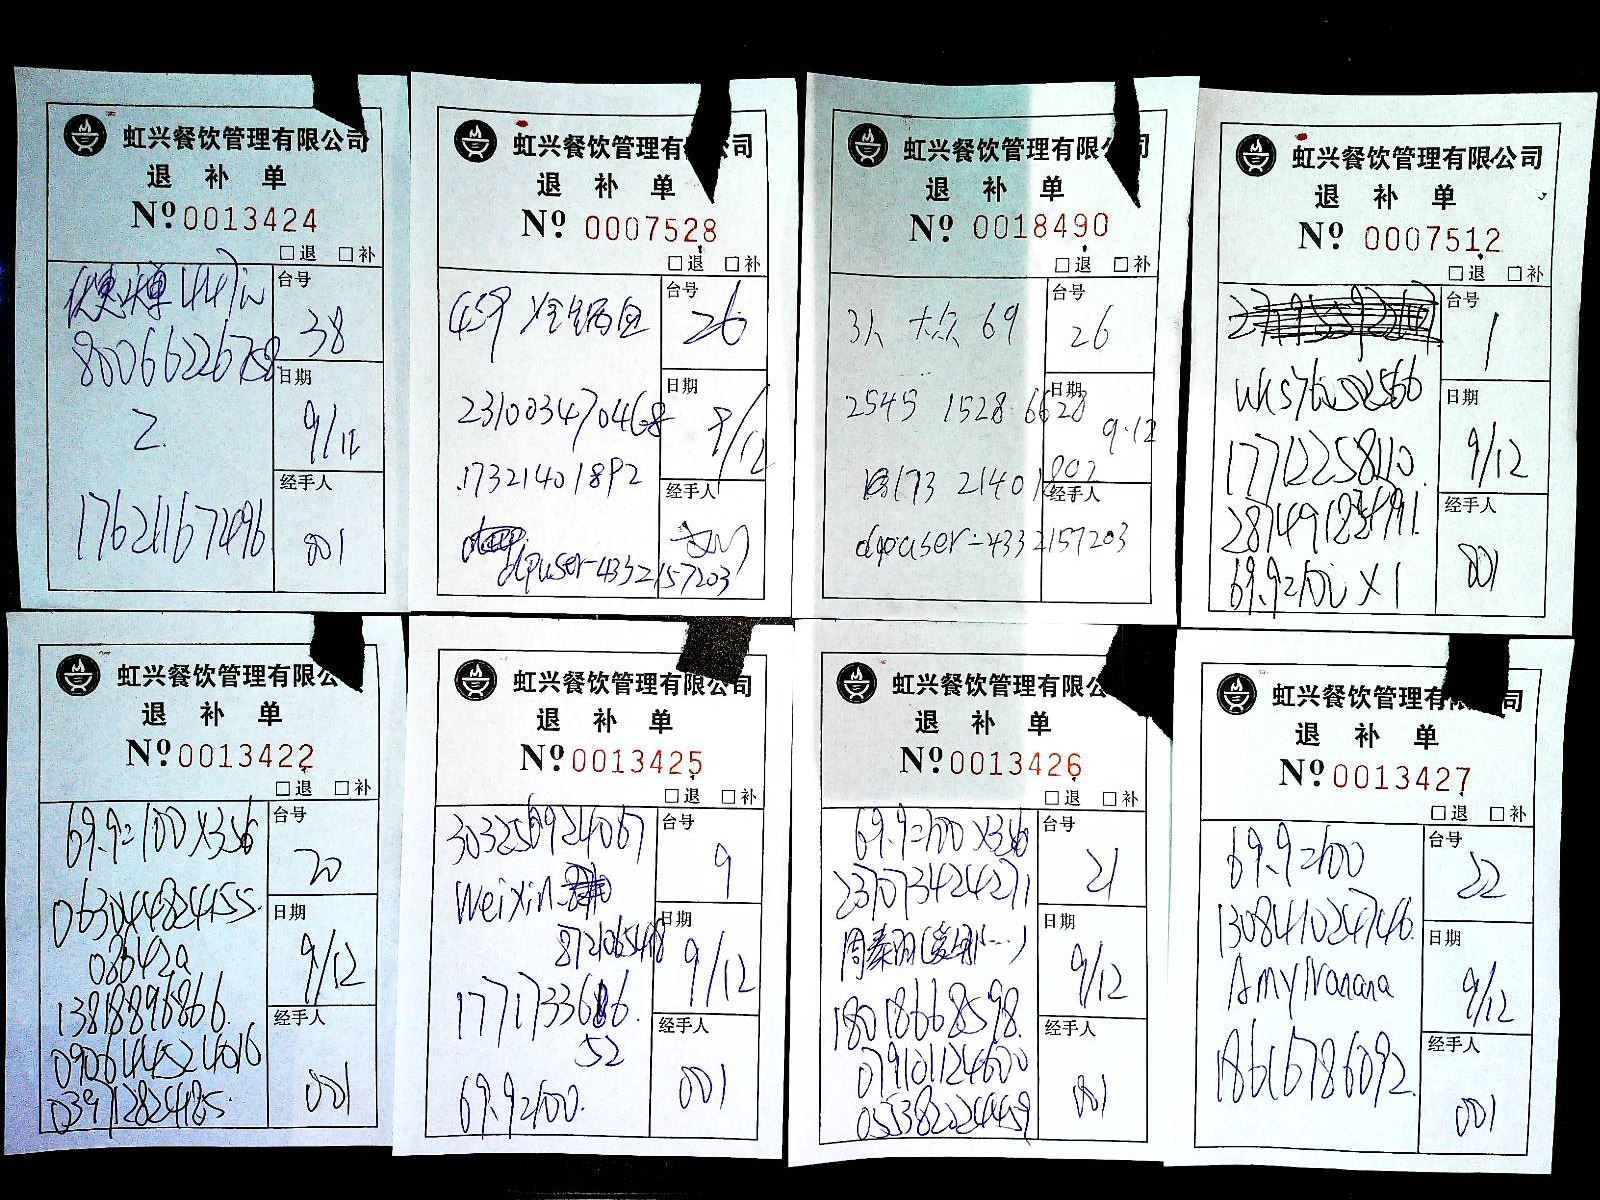 虹兴餐饮管理有限公司
退 补 单
Nº 0013424
□退 □补
80066226758
台号
38
2
日期
9/12
17621167496
经手人
001
虹兴餐饮管理有 司
退 补 单
Nº 0007528
□退 □补
459
台号
26
231003470468
日期
9/12
17321401892
经手人
dpuser-4332157203
虹兴餐饮管理有限 司
退 补 单
Nº 0018490
□退 □补
3人 大众 69
台号
26
2545 1528 6628
日期
9.12
173 2140 1892
经手人
dpuser-4332157203
虹兴餐饮管理有限公司
退 补 单
Nº 0007512
□退 □补
台号
1
日期
9/12
17712258110
经手人
69.9=100 X1
001
虹兴餐饮管理有限公
退 补 单
Nº 0013422
□退 □补
69.9=100 X3
台号
20
063044824455
日期
9/12
08642a
13818896866
经手人
0906144524016
039712824485
001
虹兴餐饮管理有限公司
退 补 单
Nº 0013425
□退 □补
303256924067
台号
9
Weixin
日期
9/12
1771733686
52
经手人
69.9=100
001
虹兴餐饮管理有限公
退 补 单
Nº 0013426
□退 □补
69.9=100 X3
台号
21
231073424271
日期
9/12
18018668598
经手人
079101124600
055382024459
001
虹兴餐饮管理有 司
退 补 单
Nº 0013427
□退 □补
69.9=100
台号
22
130841024746
日期
9/12
AmyIvanana
经手人
18616786092
001